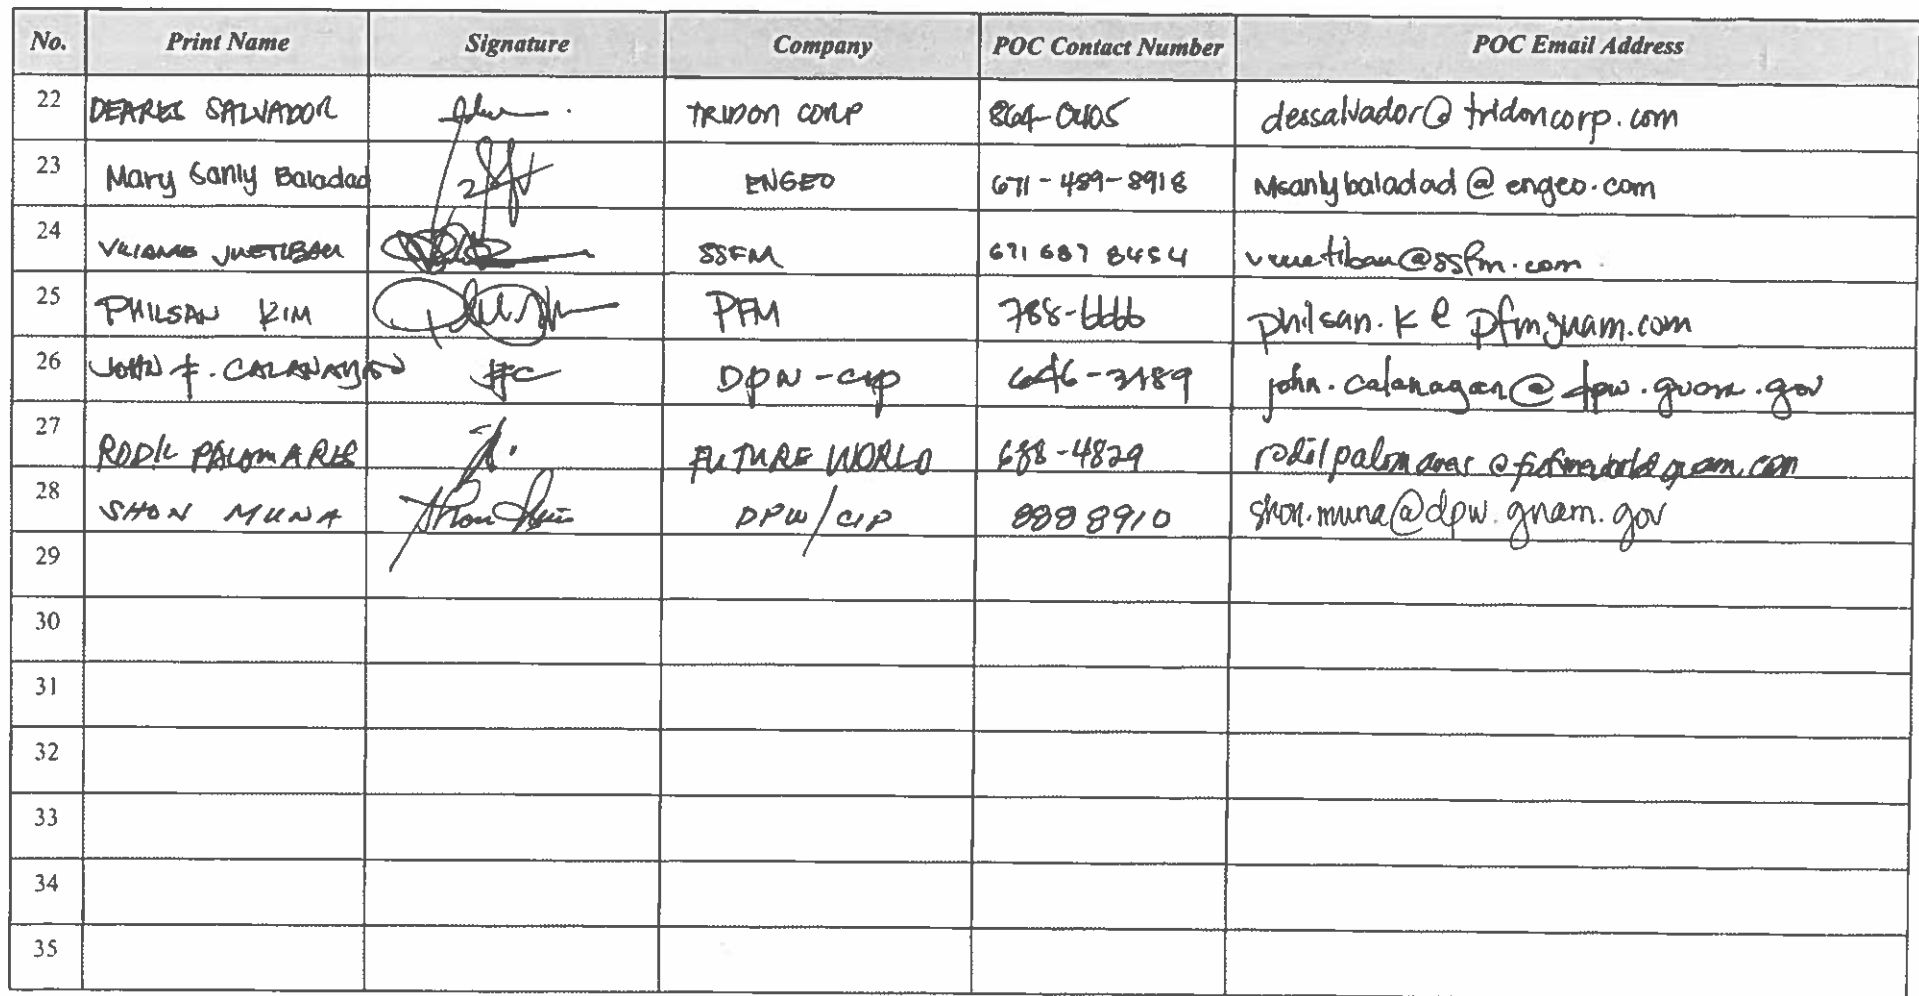 No. Print Name Signature Company POC Contact Number POC Email Address
22 DEARES SALVADOR TRIDON CORP 864-0405 dessalvador@tridoncorp.com
23 Mary Sanly Baladad ENGEO 671-489-8918 Msanlybaladad@engeo.com
24 SSFM 671 687 8454
25 PHILSAN KIM PFM 788-6666 philsan.k@pfmguam.com
26 JOHN F. CALANAGAN JFC DPW-CIP john.calanagan@dpw.guam.gov
27 RODIL PALOMARES FUTURE WORLD 688-4829
28 SHON MUNA DPW/CIP 888 8910 shon.muna@dpw.guam.gov
29
30
31
32
33
34
35